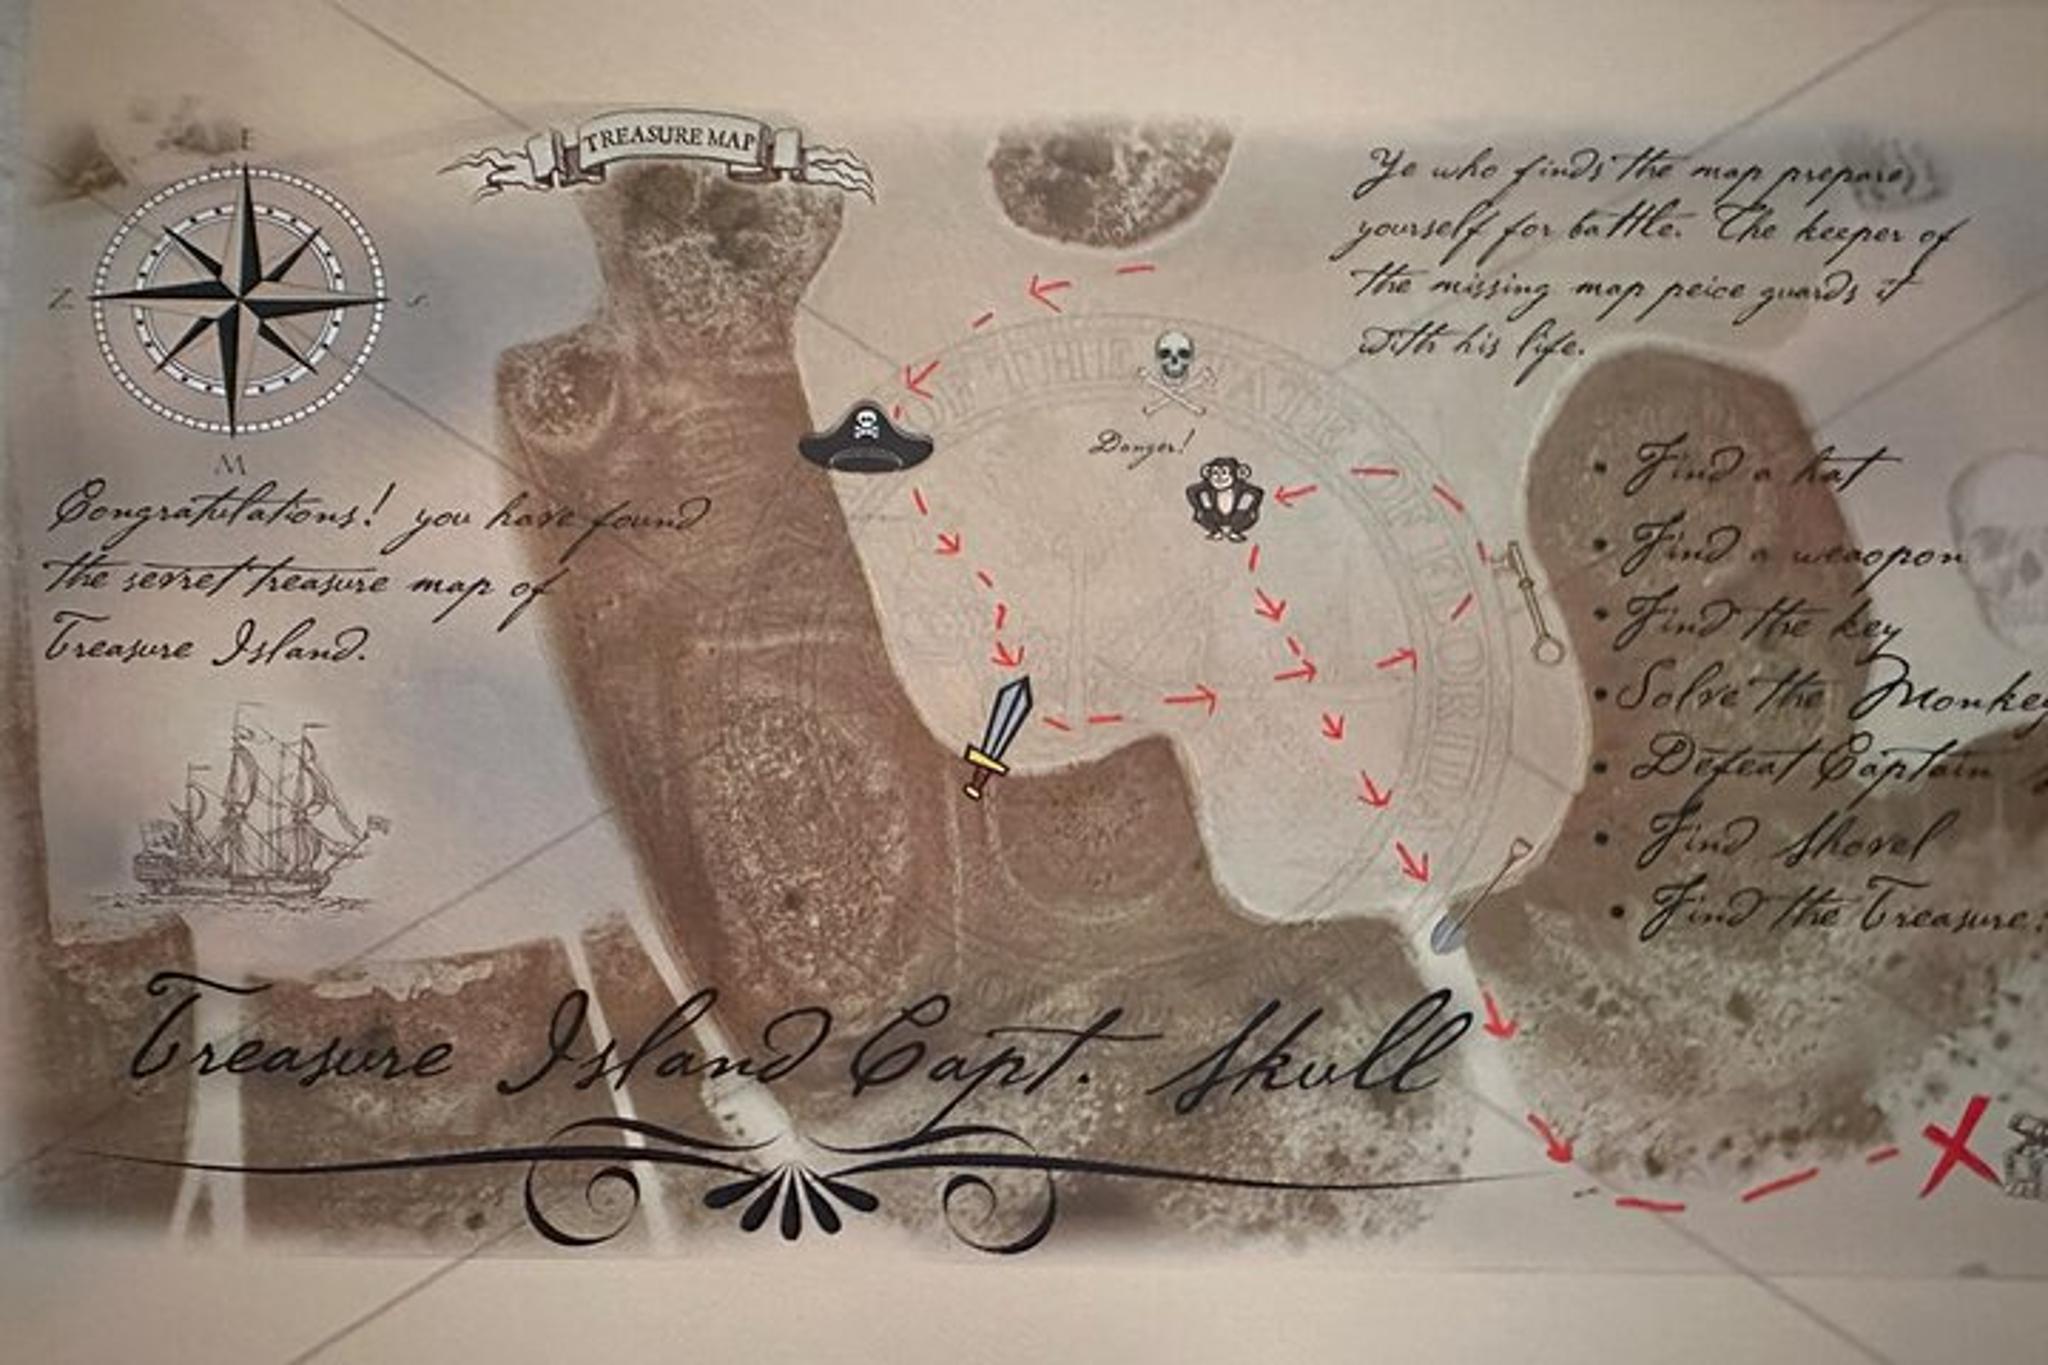 TREASURE MAP
E
Z
S
M
Ye who finds the map prepare
yourself for battle. The keeper of
the missing map peice guards it
with his life.
OF THE STATE OF FLORIDA
Danger!
Congratulations! you have found
the secret treasure map of
Treasure Island.
• Find a hat
• Find a weaopon
• Find the key
• Solve the Monkey
• Defeat Captain
• Find shovel
• Find the Treasure!
Treasure Island Capt. Skull